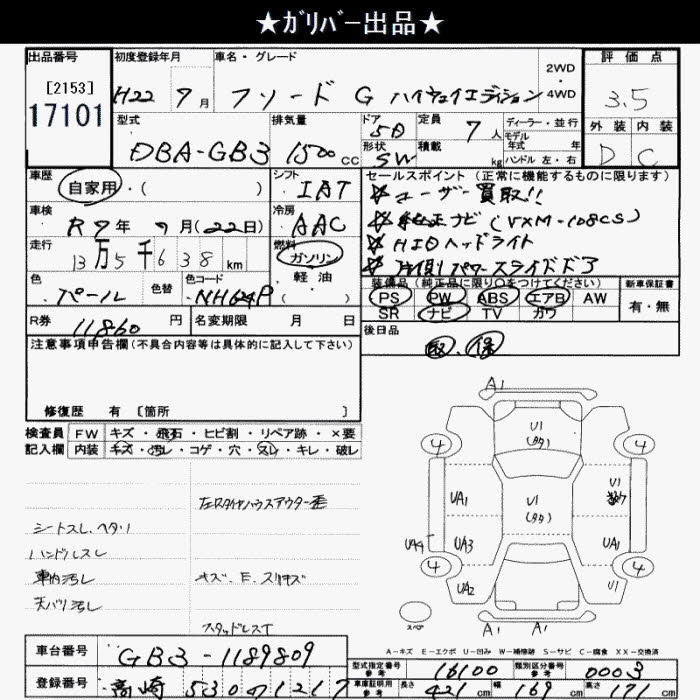 ★ガリバー出品★
出品番号 初度登録年月 車名・グレード 2WD・4WD 評価点
[2153]
17101
H22 9月 フリード G ハイウェイエディション 3.5
型式 排気量 ドア 5D 定員 7人 ディーラー・並行 外装 内装
DBA-GB3 1500cc 形状 SW 積載 kg モデル年式 年 ハンドル 左・右 D C
車歴 自家用・( ) シフト IAT セールスポイント (正常に機能するものに限ります)
☆ユーザー買取!!
車検 R9年 9月(22日) 冷房 AAC
☆純正ナビ(VXM-108CS)
☆HIDヘッドライト
走行 13万5千638km 燃料 ガソリン・軽・油・( )
☆片側パワースライドドア
色 パール 色替 色コード NH624P
装備品(純正品に限り○をつけてください) 新車保証書
PS PW ABS エアB AW 有・無
SR ナビ TV カワ
R券 11860円 名変期限 月 日
後日品 取.保
注意事項申告欄(不具合内容等は具体的に記入して下さい)
修復歴 有 [箇所 ]
検査員 FW キズ・飛石・ヒビ割・リペア跡・×要
記入欄 内装 キズ・汚レ・コゲ・穴・スレ・キレ・破レ
左Rタイヤハウスアウター歪
シートスレ.ヘタリ
ハンドルスレ
車内汚レ
キズ.E.スリキズ
天バリ汚レ
スタッドレスT
A1
U1
(タワ)
4 4
UA1 U1
(タワ) U1
UA4 UA3 UA1
4 4
UA2 U1
スペア
A1 A1
A-キズ E-エクボ U-凹み W-補修跡 S-サビ C-腐食 XX-交換済
車台番号 GB3-1189809
型式指定番号 参考 16100 類別区分番号 参考 0003
登録番号 高崎 530 1217
車庫証明用 参考 長さ 421cm 幅 169cm 高さ 171cm